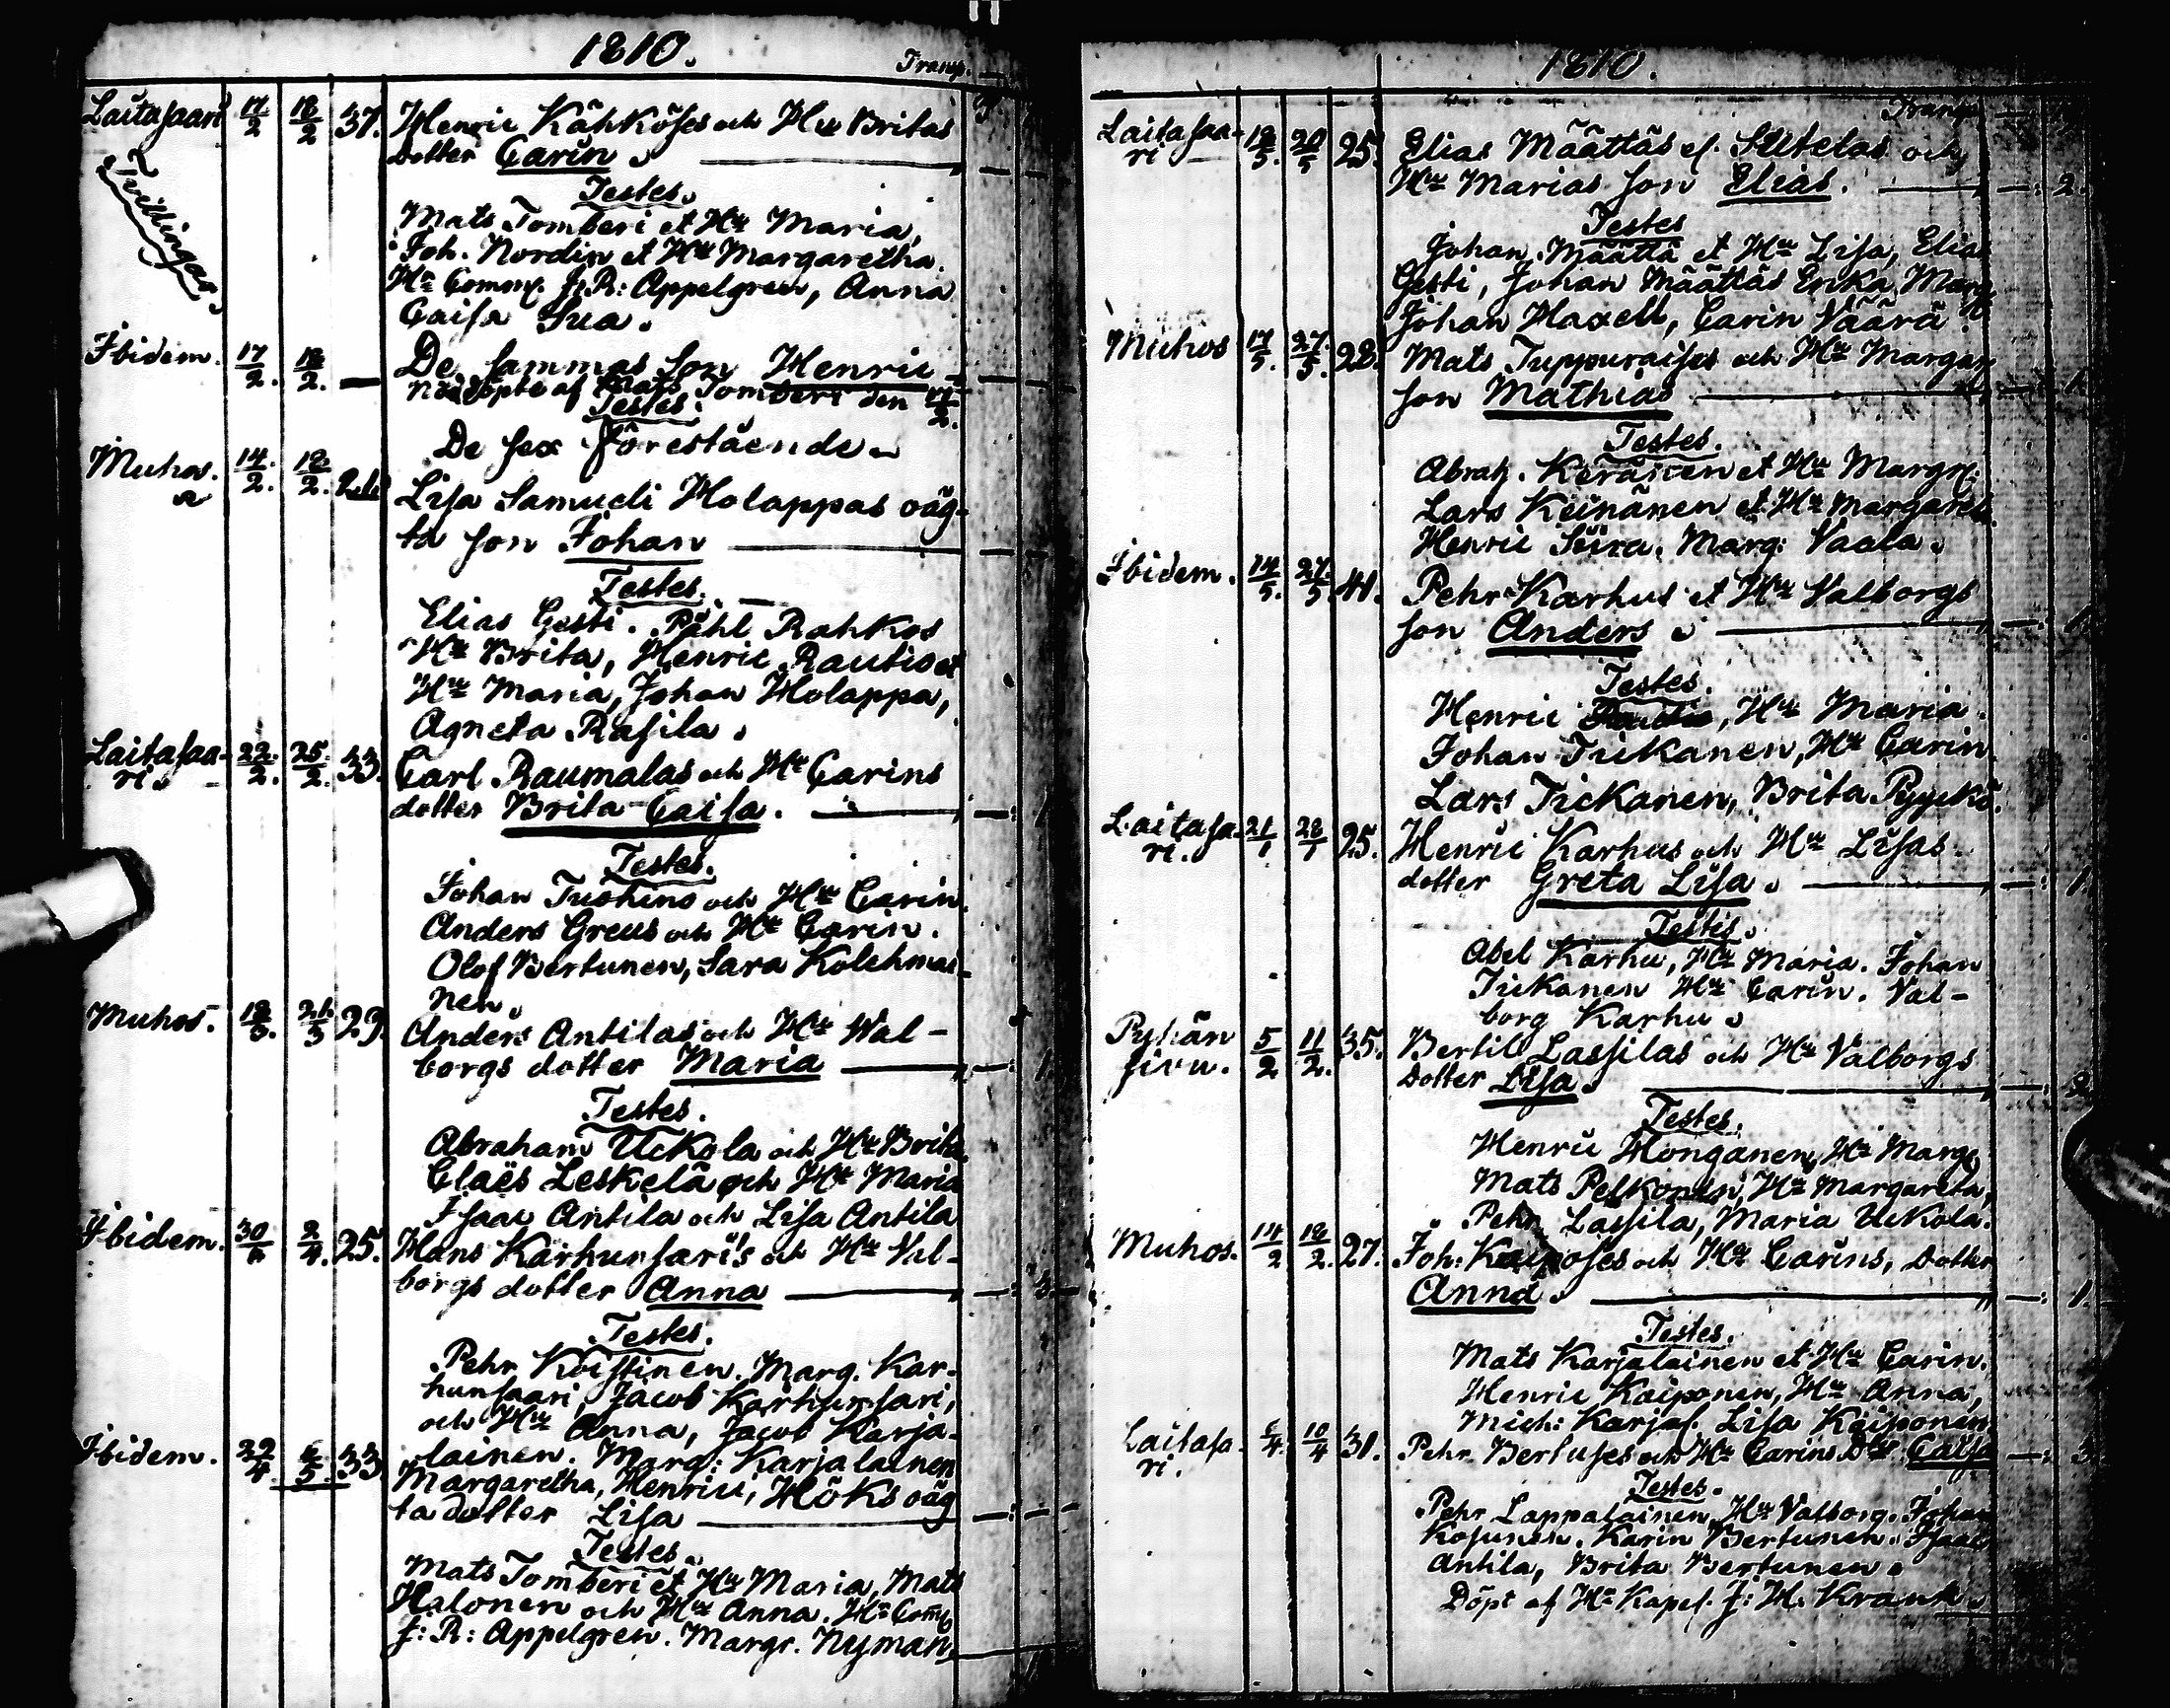 1810.
Transp.
Laitasaari 17/2 18/2 37. Henric Kähköses och Hu Britas
dotter Carin
Tvillingar.
Testes.
Mats Tomberi et Hu Maria,
Joh. Nordin et Hu Margaretha.
Hr Comm. J. R: Appelgren, Anna
Caisa Sua.
Ibidem. 17/2. 18/2. — De sammas son Henric
Nöddöpte af Mats Tomberi den 17/2.
Testes.
De sex förestående
Muhos. 14/2. 18/2. Lisa Samueli Holappas oäg-
ta son Johan
Testes.
Elias Gesti. Påhl Rahkos
Hu Brita, Henric Rautio et
Hu Maria, Johan Holappa,
Agneta Rasila.
Laitasaa- 22/2. 25/2. 33. Carl Raumalas och Hu Carins
ri. dotter Brita Caisa. 1
Testes.
Johan Tuohino och Hu Carin.
Anders Greus och Hu Carin.
Olof Bertunen, Sara Kolehmai-
nen.
Muhos. 18/3. 21/3 29. Anders Antilas och Hu Wal-
borgs dotter Maria 1.
Testes.
Abraham Uckola och Hu Brita.
Claës Leskelä och Hu Maria
Isaac Antila och Lisa Antila
Ibidem. 2/4. 25. Hans Karhunsari's och Hu Val-
borgs dotter Anna
Testes.
Pehr Koistinen. Marg. Kar-
hunsaari, Jacob Karhunsari,
och Hu Anna, Jacob Karja-
lainen. Marg: Karjalainen
Ibidem. 29/4 6/5 33 Margaretha, Henrici, Höks oäg
ta dotter Lisa
Testes.
Mats Tomberi et Hu Maria, Mats
Halonen och Hu Anna. Hr Comm
J: R: Appelgren. Margr. Nyman
1810.
Transp.
Laitasaa- 18/5. 20/5 25. Elias Määttäs el. Sutelas och
ri Hu Marias son Elias. 2.
Testes
Johan Määttä et Hu Lisa, Elias
Gesti, Johan Määttäs Enka Marg.
Johan Haxell, Carin Väärä
Muhos 17/5. 27/5. 28. Mats Tuppuraises och Hu Margar
son Mathias
Testes.
Abrah. Keränen et Hu Margr.
Lars Keinänen et Hu Margaret.
Henric Soira. Marg: Vaala.
Ibidem. 14/5. 27/5 41. Pehr Karhus et Hu Valborgs
son Anders
Testes.
Henric Rautio, Hu Maria.
Johan Tickanen, Hu Carin
Lars Tickanen, Brita Pyyckö.
Laitasa- 21/1 28/1 25. Henric Karhus och Hu Lisas
ri. dotter Greta Lisa. 1.
Testes.
Abel Karhu, Hu Maria. Johan
Tickanen Hu Carin. Val-
borg Karhu
Pyhän 5/2 11/2. 35. Bertil Lassilas och Hu Valborgs
sivu. dotter Lisa.
Testes.
Henric Honganen, Hu Marg.
Mats Pelkonen, Hu Margareta,
Pehr Lassila, Maria Uckola.
Muhos. 14/2 18/2. 27. Joh: Kaiposes och Hu Carins, dotter
Anna. 1.
Testes.
Mats Karjalainen et Hu Carin.
Henric Kaiponen, Hu Anna,
Mich: Karjal. Lisa Kaiponen
Laitasa- 6/4. 10/4 31. Pehr Bertuses och Hu Carins Dr Caisa 3
ri.
Testes.
Pehr Lappalainen, Hu Valborg. Johan
Kosunen. Karin Bertunen. Isaac
Antila, Brita Bertunen.
Döpt af Hr Kapel. J: H: Krank.